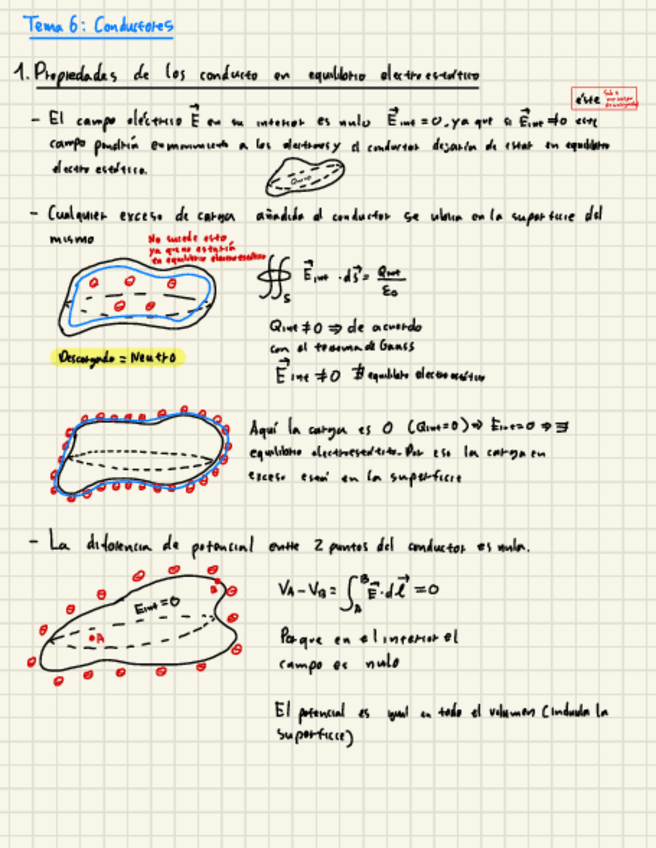 Tema 6: Conductores
1. Propiedades de los conducto en equilibrio electroestático
éste
- El campo eléctrico E⃗ en su interior es nulo E⃗int = 0. ya que si E⃗int ≠ 0 este
campo pondría en movimiento a los electrones y el conductor dejaría de estar en equilibrio
electroestático.
- Cualquier exceso de carga añadida al conductor se ubica en la superficie del
mismo
No sucede esto
ya que no estaría
en equilibrio electroestático
∯s E⃗int · ds⃗ = Qint/ε0
Qint ≠ 0 ⇒ de acuerdo
con el teorema de Gauss
E⃗int ≠ 0 ∄ equilibrio electroestático
Descargado = Neutro
Aquí la carga es 0 (Qint = 0) ⇒ Eint = 0 ⇒ ∃
equilibrio electroestático. Por eso la carga en
exceso está en la superficie
- La diferencia de potencial entre 2 puntos del conductor es nula.
Eint = 0
A
B
VA - VB = ∫A^B E⃗ · dl⃗ = 0
Porque en el interior el
campo es nulo
El potencial es igual en todo el volumen (incluida la
superficie)